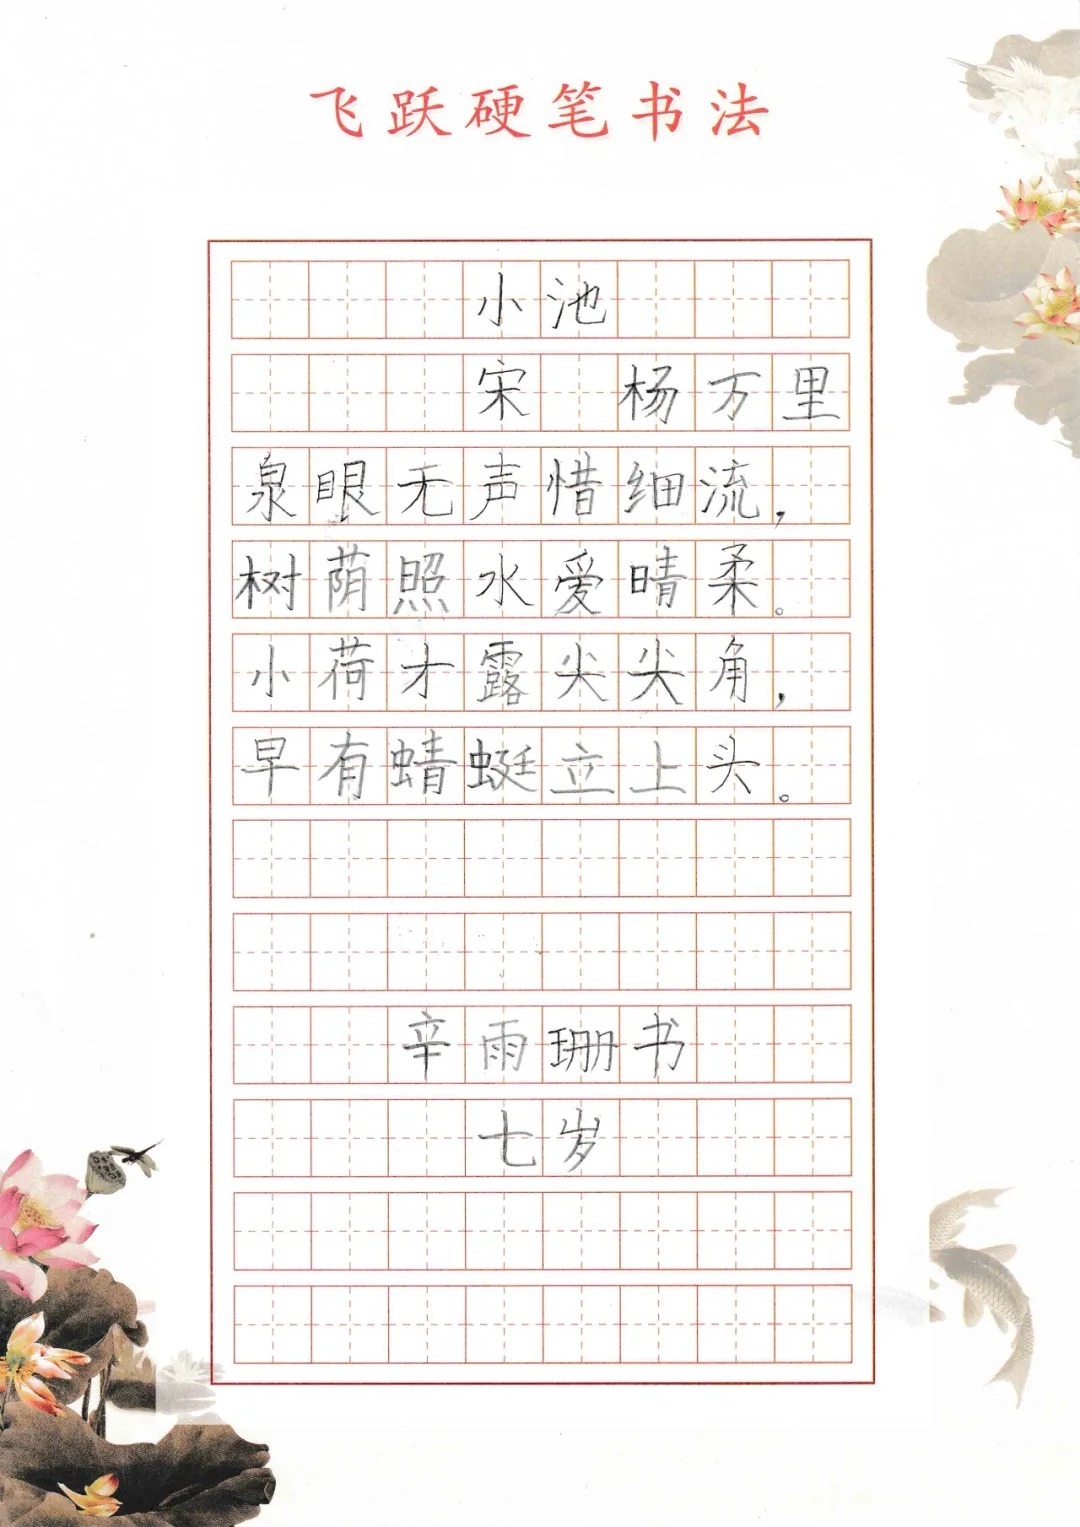 飞跃硬笔书法
小池
宋 杨万里
泉眼无声惜细流，
树荫照水爱晴柔。
小荷才露尖尖角，
早有蜻蜓立上头。
辛雨珊书
七岁